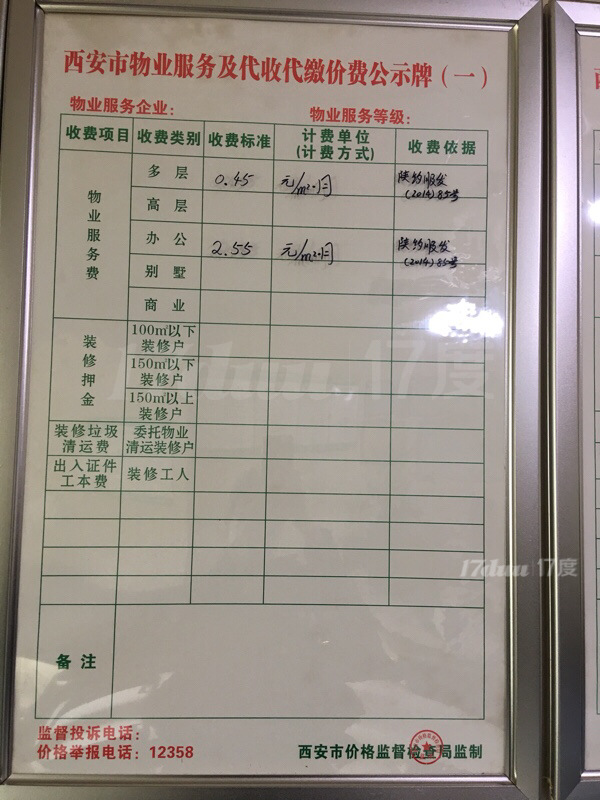 西安市物业服务及代收代缴价费公示牌（一）
物业服务企业： 物业服务等级：
收费项目 收费类别 收费标准 计费单位(计费方式) 收费依据
物业服务费
多层 0.45 元/m²·月 陕物服发(2014)85号
高层
办公 2.55 元/m²·月 陕物服发(2014)85号
别墅
商业
装修押金
100㎡以下装修户
150㎡以下装修户
150㎡以上装修户
装修垃圾清运费 委托物业清运装修户
出入证件工本费 装修工人
备注
监督投诉电话：
价格举报电话：12358 西安市价格监督检查局监制
17duu 17度
17duu 17度